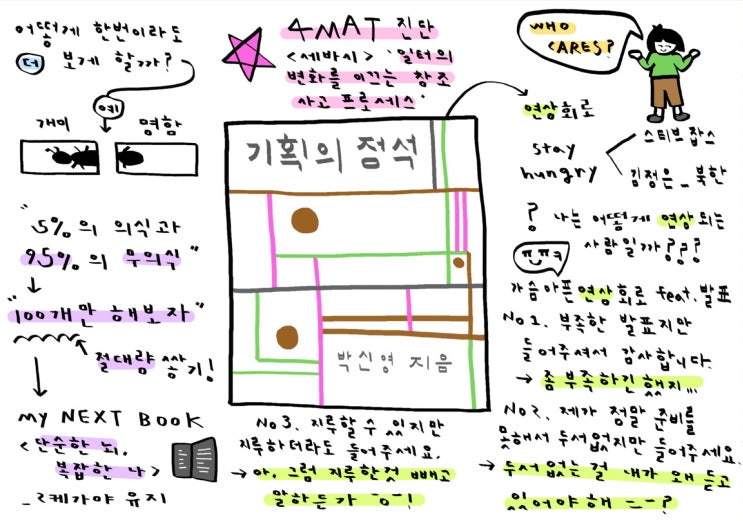 어떻게 한번이라도
더 보게 할까?
예
개미
명함
"5%의 의식과
95%의 무의식"
"100개만 해보자"
절대량 쌓기!
MY NEXT BOOK
<단순한 뇌,
복잡한 나>
_이케가야 유지
4MAT 진단
<세바시> '일터의
변화를 이끄는 창조
사고 프로세스'
기획의 정석
박신영 지음
No3. 지루할 수 있지만
지루하더라도 들어주세요.
→ 아, 그럼 지루한것 빼고
말하든가 ㅡㅡ!
WHO
CARES?
연상회로
stay
hungry
스티브잡스
김정은_북한
? 나는 어떻게 연상되는
사람일까???
가슴아픈 연상회로 feat.발표
No1. 부족한 발표지만
들어주셔서 감사합니다.
→ 좀 부족하긴 했지...
No2. 제가 정말 준비를
못해서 두서없지만 들어주세요.
→ 두서없는 걸 내가 왜 듣고
있어야해 ㅡㅡ?